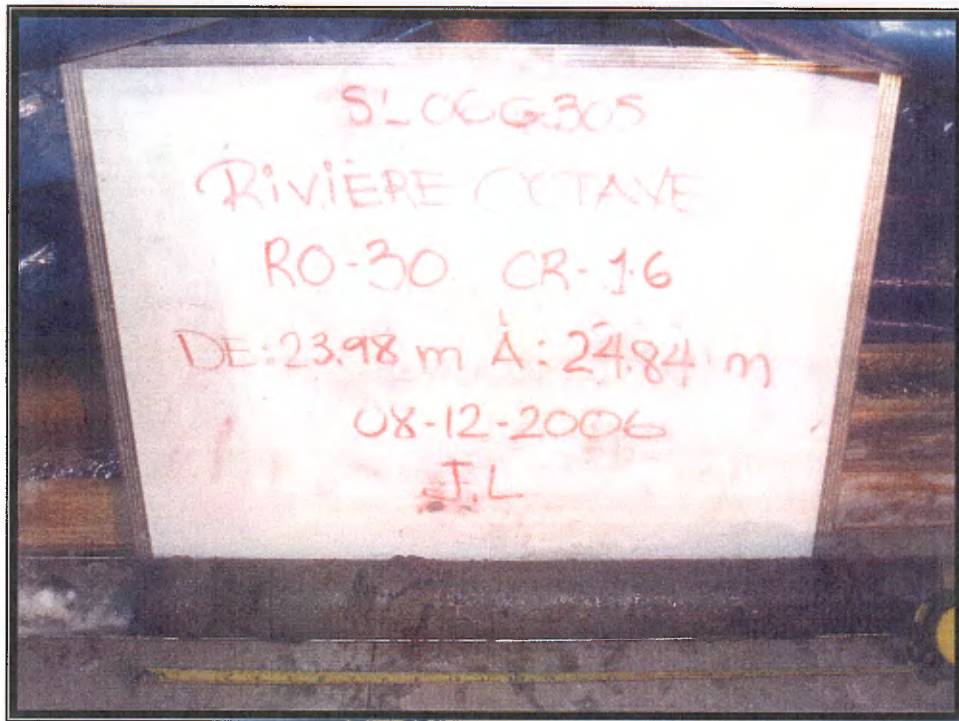 SL06G305
RIVIÈRE OCTAVE
RO-30 CR-16
DE: 23.98 m À: 24.84 m
08-12-2006
J.L